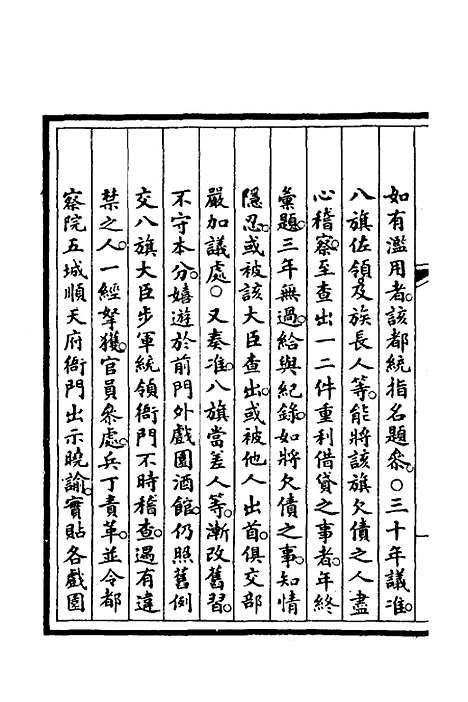 如有濫用者。該都統指名題參。○三十年議准。
八旗佐領。及族長人等。能將該旗欠債之人盡
心稽察。至查出一二件重利借貸之事者。年終
彙題。三年無過。給與紀錄。如將欠債之事。知情
隱忍。或被該大臣查出。或被他人出首。俱交部
嚴加議處。○又奏准。八旗當差人等。漸改舊習。
不守本分。嬉遊於前門外戲園酒館。仍照舊例
交八旗大臣步軍統領衙門不時稽查。遇有違
禁之人。一經拏獲。官員參處。兵丁責革。並令都
察院五城順天府衙門出示曉諭。實貼各戲園